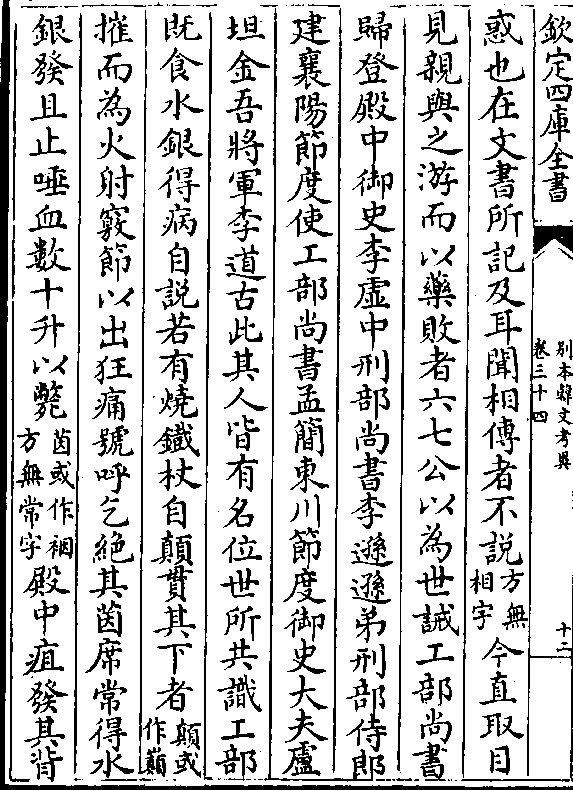 欽定四庫全書
别本韓文考異
卷三十四
十二
惑也在文書所記及耳聞相傳者不説方無相字今直取目
見親與之游而以藥敗者六七公以為世誡工部尚書
歸登殿中御史李虛中刑部尚書李遜遜弟刑部侍郎
建襄陽節度使工部尚書孟簡東川節度御史大夫盧
坦金吾將軍李道古此其人皆有名位世所共識工部
既食水銀得病自説若有燒鐵杖自顛貫其下者顛或作巔
摧而為火射竅節以出狂痛號呼乞絶其茵席常得水
銀發且止唾血數十升以斃茵或作裀方無常字殿中疽發其背